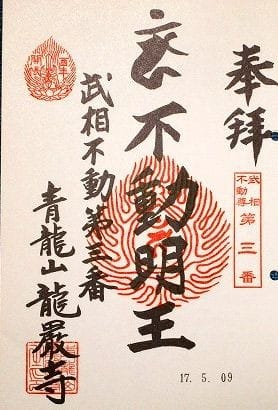 奉拝
武相
不動尊
第三番
不動明王
武相不動第三番
青龍山 龍嚴寺
17.5.09